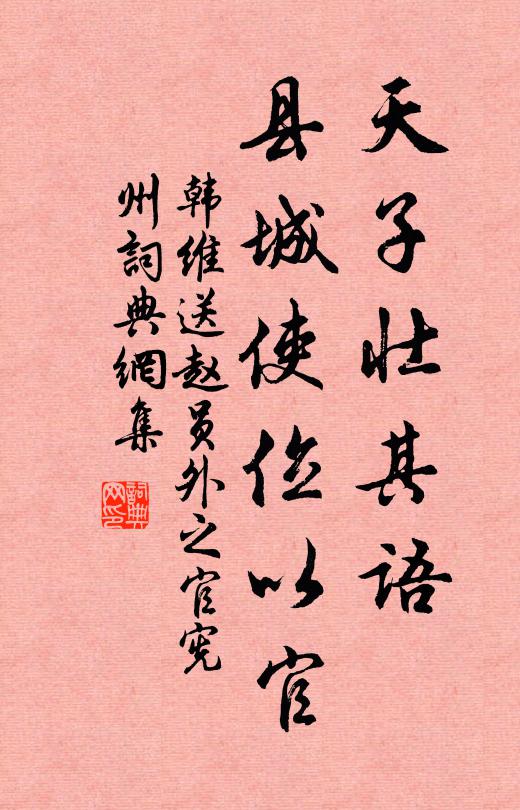 天子壮其语
县城使位以官
韩维送赵员外之官宪
州詞典網集
詞典网印